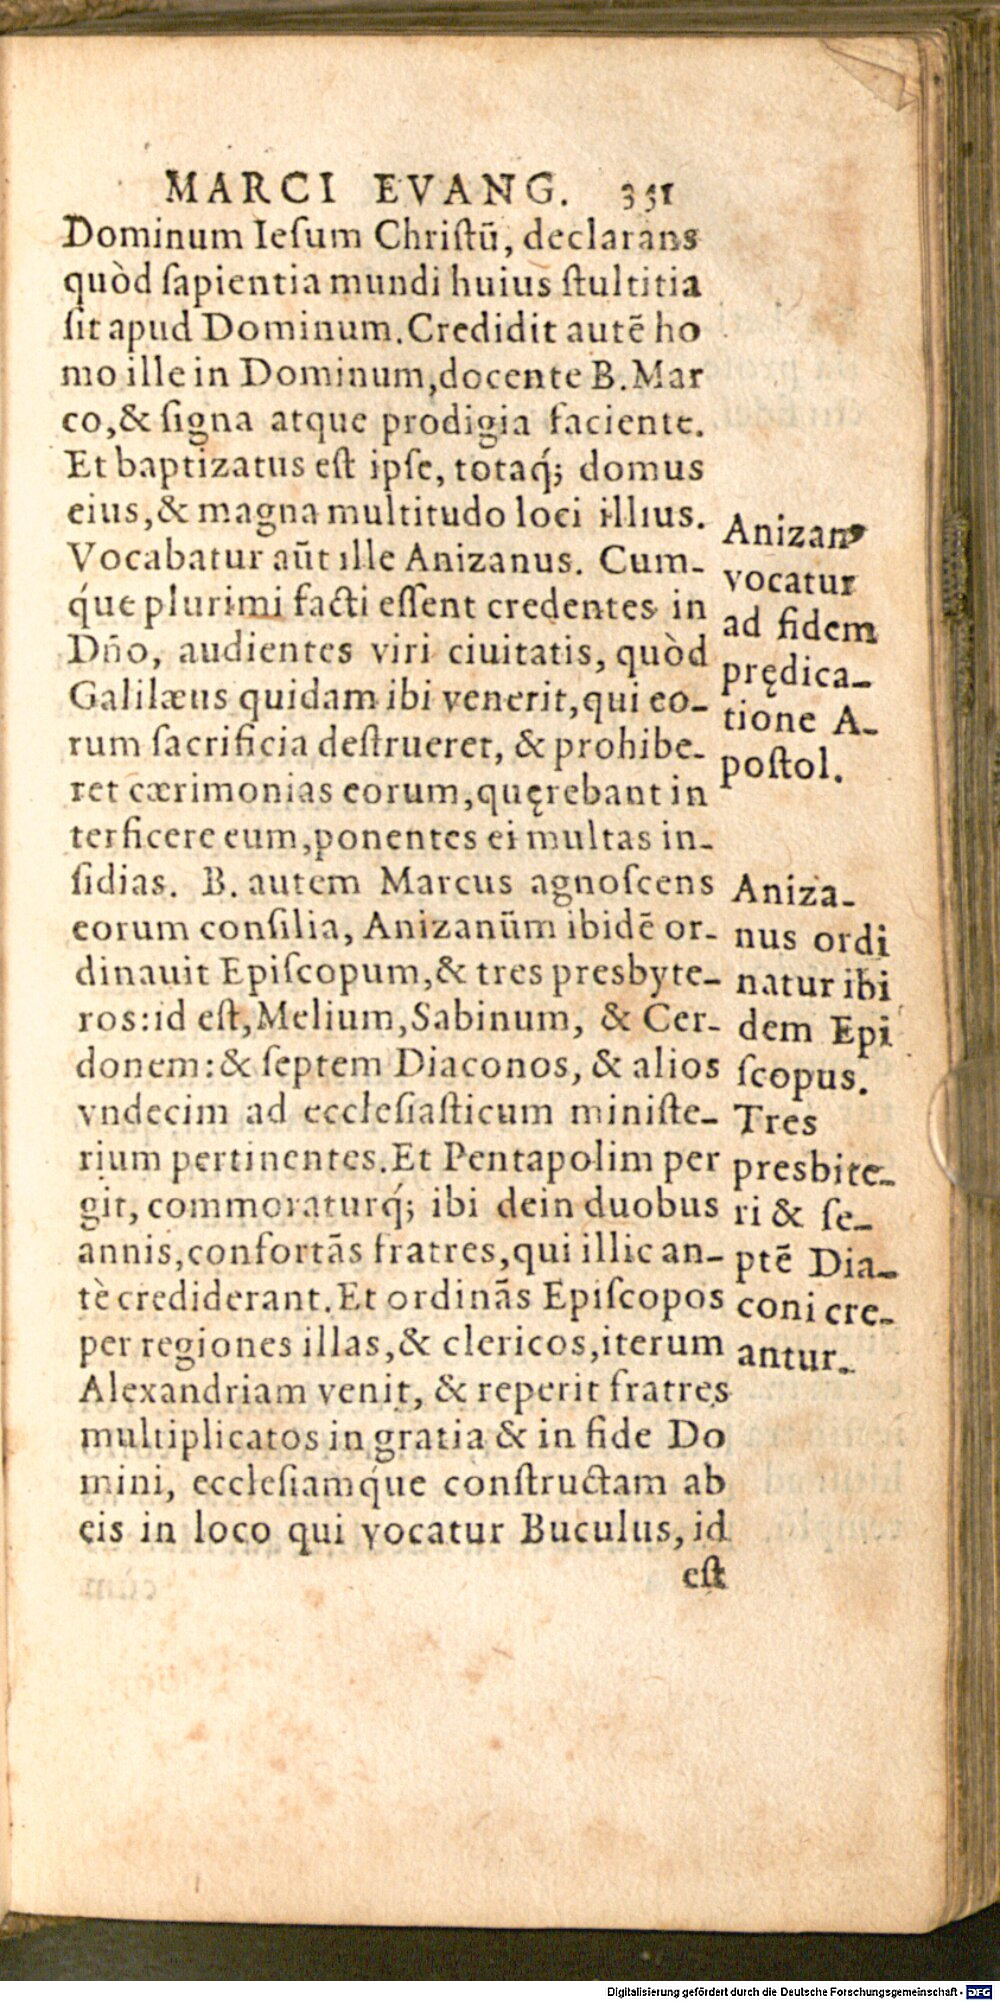 MARCI EVANG. 351
Dominum Ieſum Chriſtũ, declarans
quòd ſapientia mundi huius ſtultitia
ſit apud Dominum. Credidit autẽ ho
mo ille in Dominum, docente B. Mar
co, & ſigna atque prodigia faciente.
Et baptizatus eſt ipſe, totaq́; domus
eius, & magna multitudo loci illius.
Vocabatur aũt ille Anizanus. Cum-
q́ue plurimi facti eſſent credentes in
Dño, audientes viri ciuitatis, quòd
Galilæus quidam ibi venerit, qui eo-
rum ſacrificia deſtrueret, & prohibe-
ret cærimonias eorum, quęrebant in
terficere eum, ponentes ei multas in-
ſidias. B. autem Marcus agnoſcens
eorum conſilia, Anizanũm ibidẽ or-
dinauit Epiſcopum, & tres presbyte-
ros: id eſt, Melium, Sabinum, & Cer-
donem: & ſeptem Diaconos, & alios
vndecim ad eccleſiaſticum miniſte-
rium pertinentes. Et Pentapolim per
git, commoraturq́; ibi dein duobus
annis, confortãs fratres, qui illic an-
tè crediderant. Et ordinãs Epiſcopos
per regiones illas, & clericos, iterum
Alexandriam venit, & reperit fratres
multiplicatos in gratia & in fide Do
mini, eccleſiamq́ue conſtructam ab
eis in loco qui vocatur Buculus, id
eſt
Anizanꝰ
vocatur
ad fidem
prędica-
tione A-
poſtol.
Aniza-
nus ordi
natur ibi
dem Epi
ſcopus.
Tres
presbite-
ri & ſe-
ptẽ Dia-
coni cre-
antur.
Digitalisierung gefördert durch die Deutsche Forschungsgemeinschaft - DFG